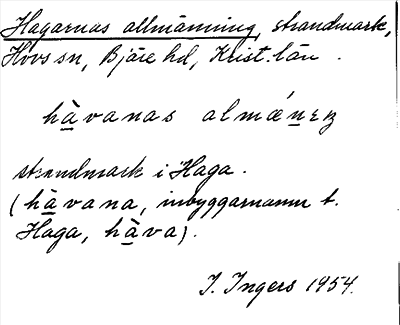 Hagarnas allmänning, strandmark,
Hovs sn, Bjäre hd, Krist. län.
hàvanas almǽnɛŋ
strandmark i Haga.
(hàvana, inbyggarnamn t.
Haga, hàva).
I. Ingers 1954.